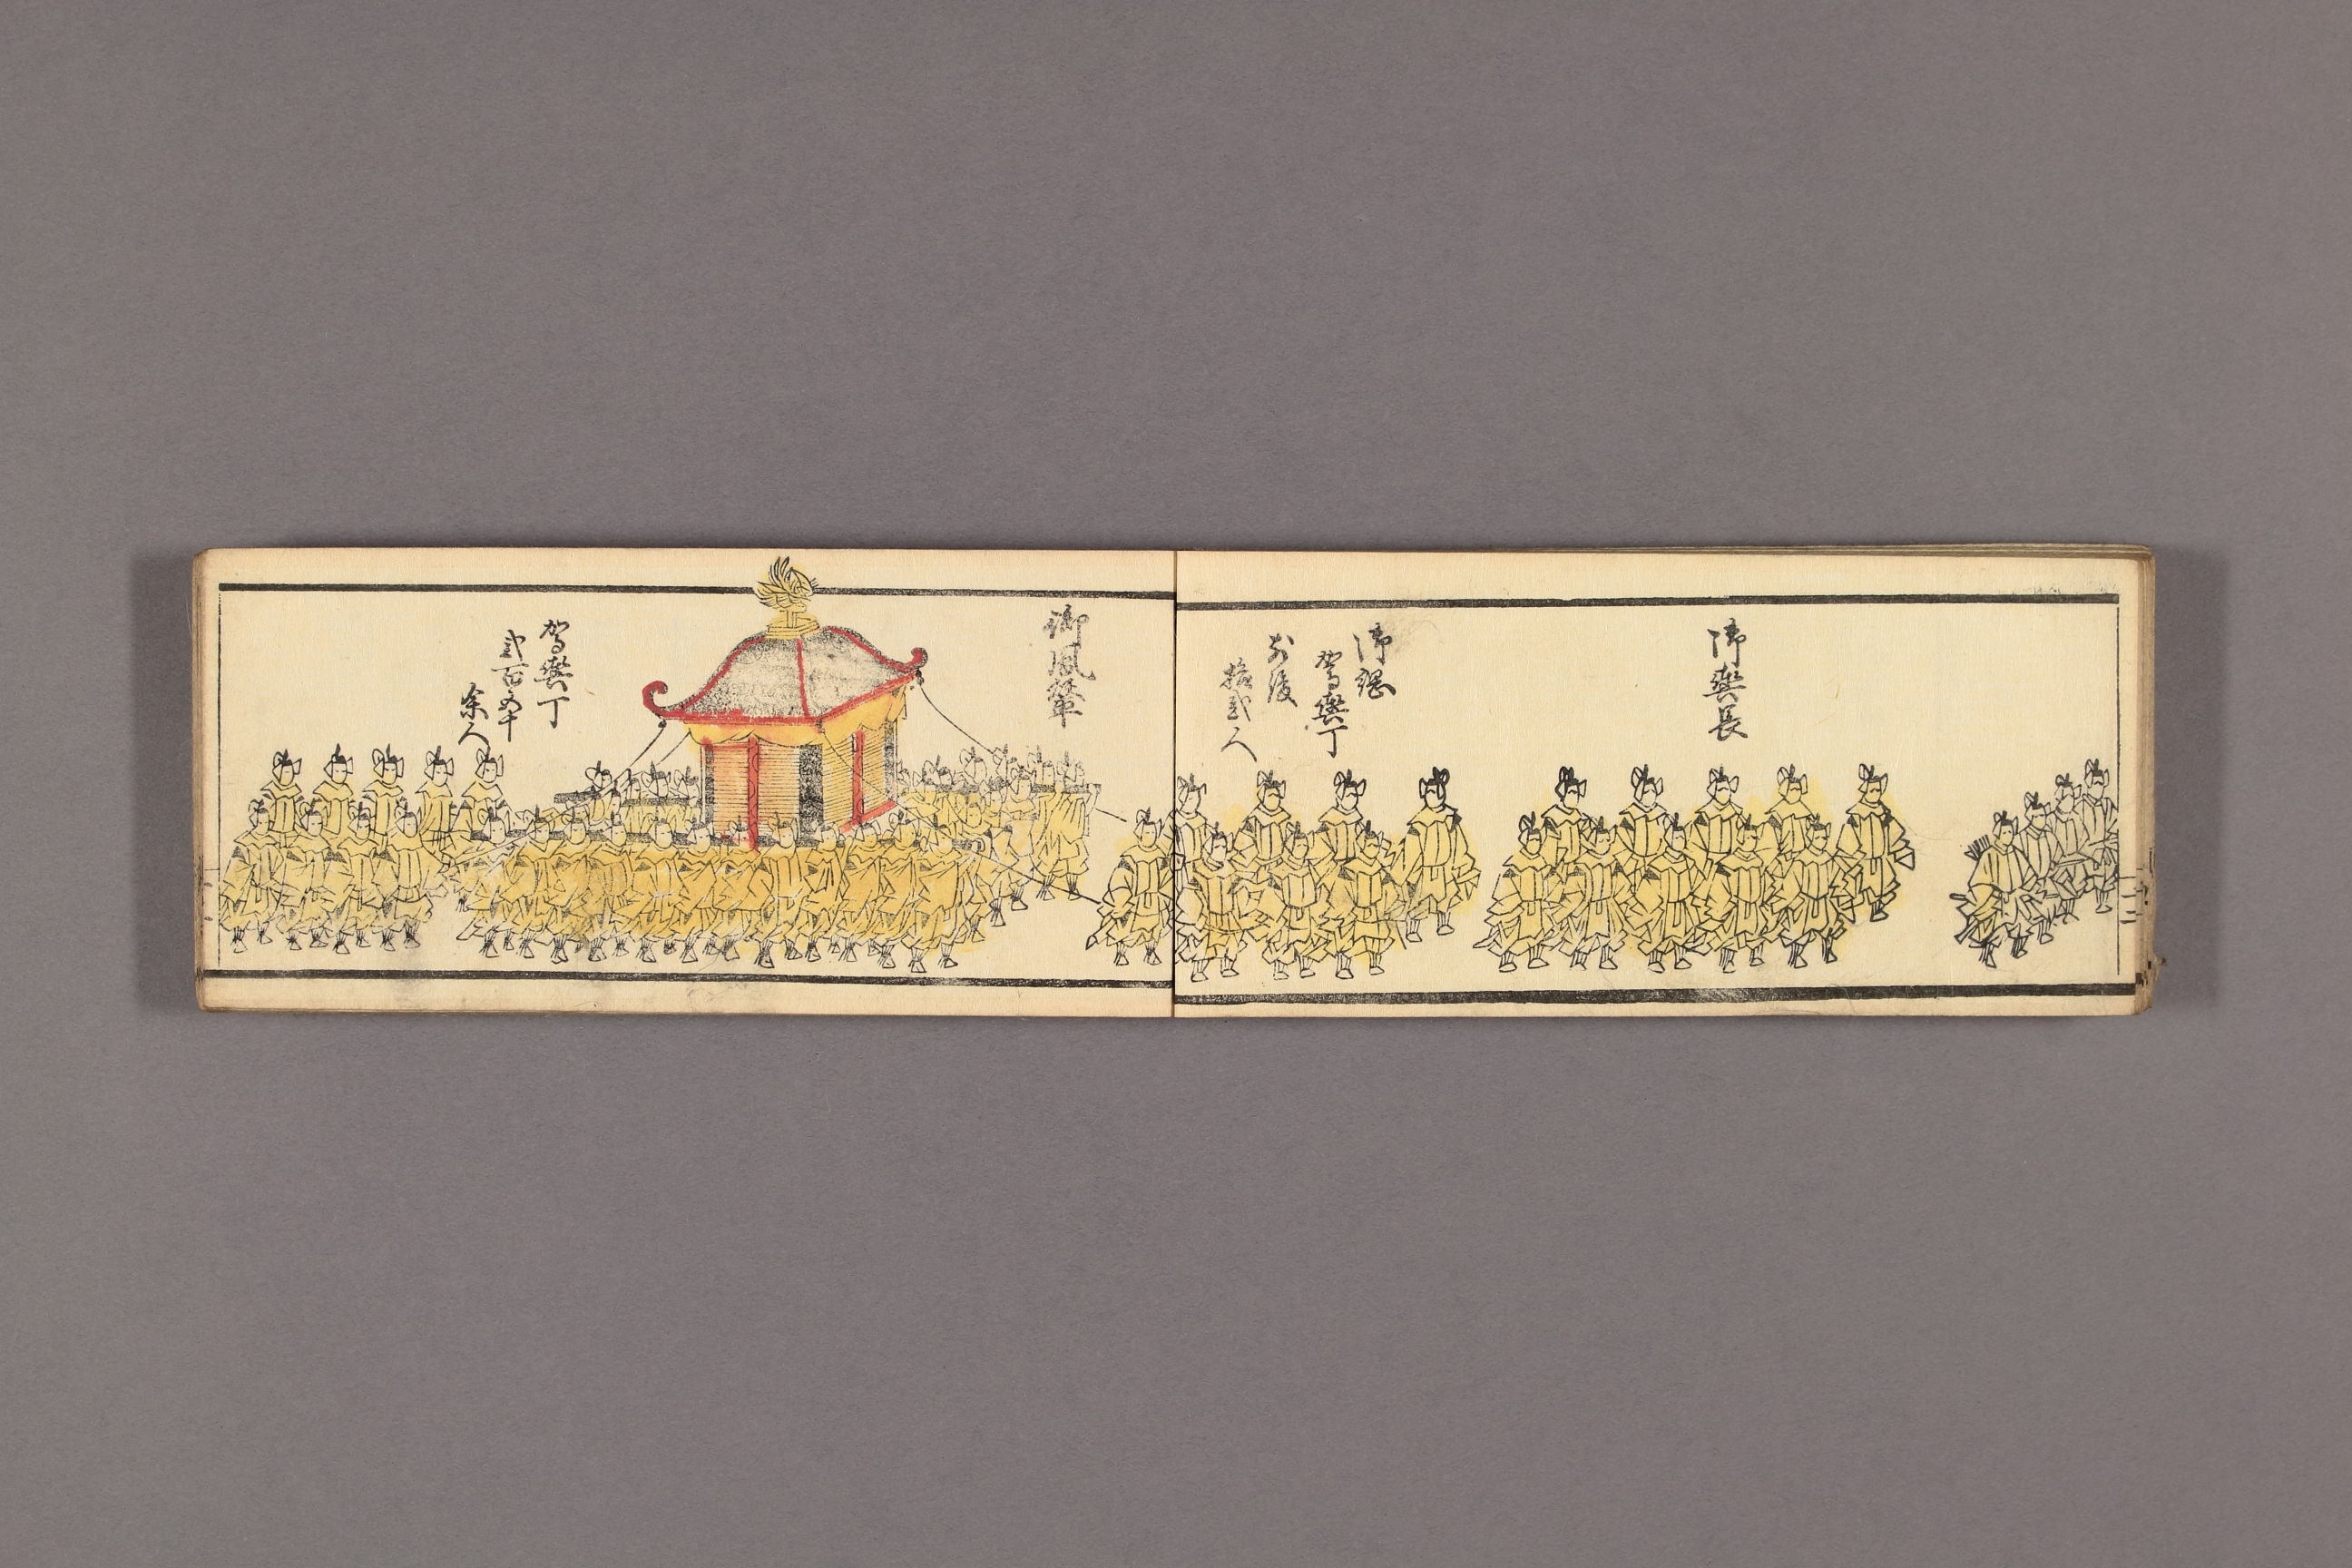 御輿長
御綱
駕輿丁
前後
拾弐人
御鳳輦
駕輿丁
弐百五十
余人